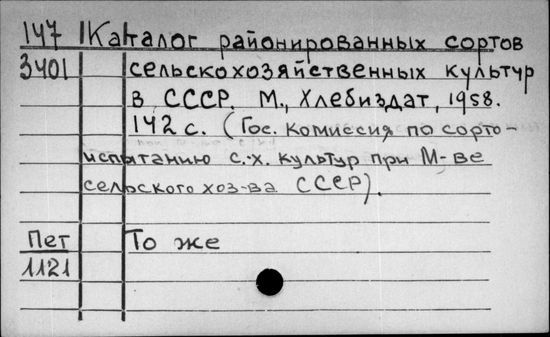 147 Каталог районированных сортов
3401 сельскохозяйственных культур
в СССР. М., Хлебиздат, 1958.
142 с. (Гос. комиссия по сорто-
испытанию с.-х. культур при М-ве
сельского хоз-ва СССР).
Пет То же
1121